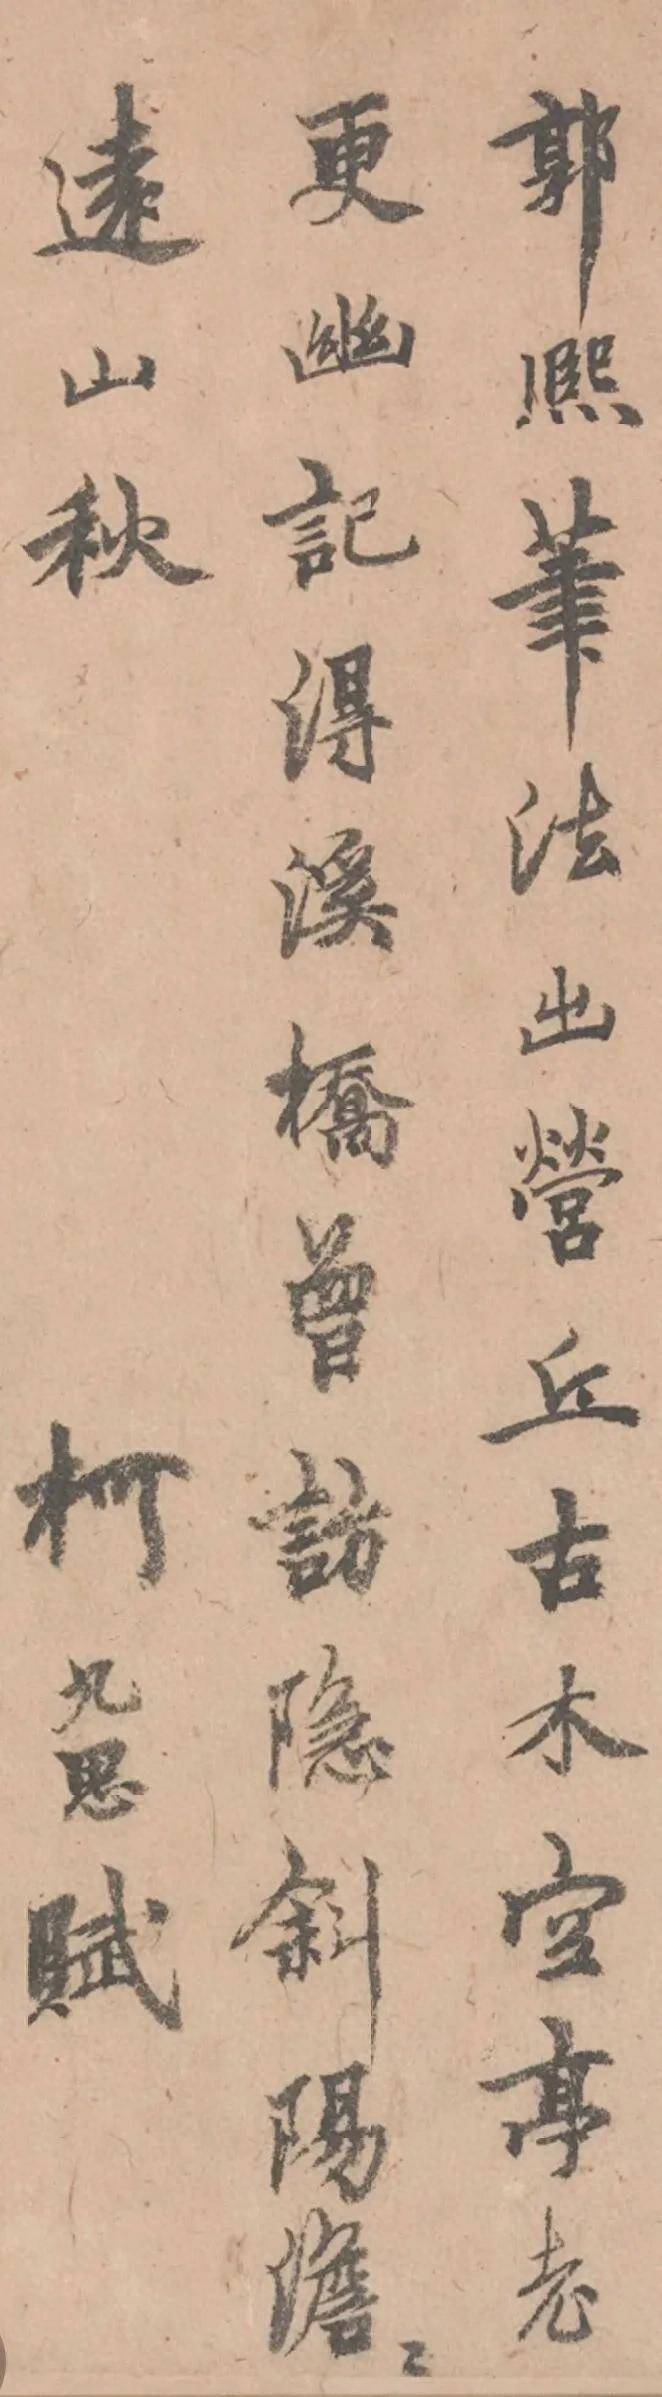 郭熙筆法出營丘古木空亭老
更幽記得溪橋曾訪隐斜陽澹〻
遠山秋 柯九思賦